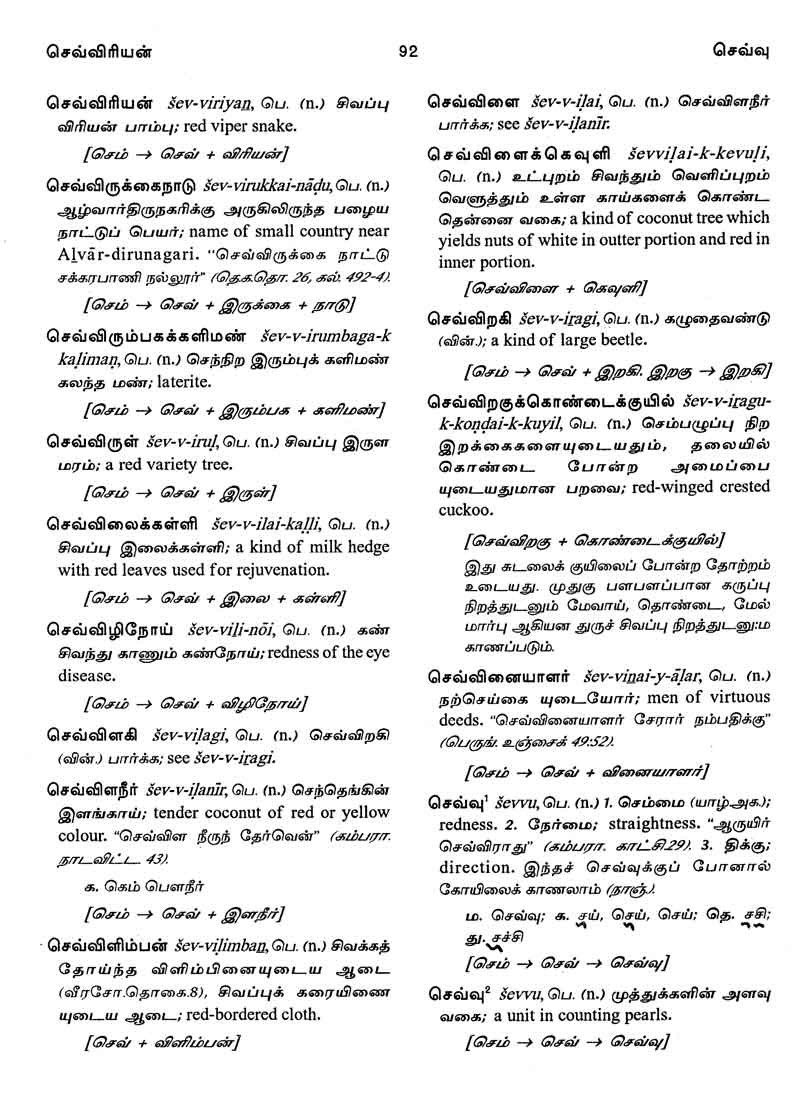 செவ்விரியன்
92
செவ்வு
செவ்விரியன் šev-viriyaṉ, பெ. (n.) சிவப்பு
விரியன் பாம்பு; red viper snake.
[செம் → செவ் + விரியன்]
செவ்விருக்கைநாடு šev-virukkai-nāḍu, பெ. (n.)
ஆழ்வார்திருநகரிக்கு அருகிலிருந்த பழைய
நாட்டுப் பெயர்; name of small country near
Aḷvār-dirunagari. “செவ்விருக்கை நாட்டு
சக்கரபாணி நல்லூர்” (தெ.க.தொ. 26, கல். 492-4).
[செம் → செவ் + இருக்கை + நாடு]
செவ்விரும்பகக்களிமண் šev-v-irumbaga-k
kaḷimaṇ, பெ. (n.) செந்நிற இரும்புக் களிமண்
கலந்த மண்; laterite.
[செம் → செவ் + இரும்பக + களிமண்]
செவ்விருள் šev-v-iruḷ, பெ. (n.) சிவப்பு இருள
மரம்; a red variety tree.
[செம் → செவ் + இருள்]
செவ்விலைக்கள்ளி šev-v-ilai-kaḷḷi, பெ. (n.)
சிவப்பு இலைக்கள்ளி; a kind of milk hedge
with red leaves used for rejuvenation.
[செம் → செவ் + இலை + கள்ளி]
செவ்விழிநோய் šev-viḻi-nōi, பெ. (n.) கண்
சிவந்து காணும் கண்நோய்; redness of the eye
disease.
[செம் → செவ் + விழிநோய்]
செவ்விளகி šev-viḷagi, பெ. (n.) செவ்விறகி
(வின்.) பார்க்க; see šev-v-iṟagi.
செவ்விளநீர் šev-v-iḷanīr, பெ. (n.) செந்தெங்கின்
இளங்காய்; tender coconut of red or yellow
colour. “செவ்விள நீருந் தேர்வென்” (கம்பரா.
நாடவிட்ட. 43).
க. கெம் பௌநீர்
[செம் → செவ் + இளநீர்]
செவ்விளிம்பன் šev-viḷimbaṉ, பெ. (n.) சிவக்கத்
தோய்ந்த விளிம்பினையுடைய ஆடை
(வீரசோ.தொகை.8), சிவப்புக் கரையிணை
யுடைய ஆடை; red-bordered cloth.
[செவ் + விளிம்பன்]
செவ்விளை šev-v-iḷai, பெ. (n.) செவ்விளநீர்
பார்க்க; see šev-v-iḷanīr.
செவ்விளைக்கெவுளி ševviḷai-k-kevuḷi,
பெ. (n.) உட்புறம் சிவந்தும் வெளிப்புறம்
வெளுத்தும் உள்ள காய்களைக் கொண்ட
தென்னை வகை; a kind of coconut tree which
yields nuts of white in outter portion and red in
inner portion.
[செவ்விளை + கெவுளி]
செவ்விறகி šev-v-iṟagi, பெ. (n.) கழுதைவண்டு
(வின்.); a kind of large beetle.
[செம் → செவ் + இறகி. இறகு → இறகி]
செவ்விறகுக்கொண்டைக்குயில் šev-v-iṟagu-
k-koṇḍai-k-kuyil, பெ. (n.) செம்பழுப்பு நிற
இறக்கைகளையுடையதும், தலையில்
கொண்டை போன்ற அமைப்பை
யுடையதுமான பறவை; red-winged crested
cuckoo.
[செவ்விறகு + கொண்டைக்குயில்]
இது சுடலைக் குயிலைப் போன்ற தோற்றம்
உடையது. முதுகு பளபளப்பான கருப்பு
நிறத்துடனும் மேவாய், தொண்டை, மேல்
மார்பு ஆகியன துருச் சிவப்பு நிறத்துடனு:ம
காணப்படும்.
செவ்வினையாளர் šev-viṉai-y-āḷar, பெ. (n.)
நற்செய்கை யுடையோர்; men of virtuous
deeds. “செவ்வினையாளர் சேரார் நம்பதிக்கு”
(பெருங். உஞ்சைக் 49:52).
[செம் → செவ் + வினையாளர்]
செவ்வு¹ ševvu, பெ. (n.) 1. செம்மை (யாழ்.அக.);
redness. 2. நேர்மை; straightness. “ஆருயிர்
செவ்விராது” (கம்பரா. காட்சி.29). 3. திக்கு;
direction. இந்தச் செவ்வுக்குப் போனால்
கோயிலைக் காணலாம் (நாஞ்.).
ம. செவ்வு; க. சய், செய், செய்; தெ. சசி;
து. சச்சி
[செம் → செவ் → செவ்வு]
செவ்வு² ševvu, பெ. (n.) முத்துக்களின் அளவு
வகை; a unit in counting pearls.
[செம் → செவ் → செவ்வு]